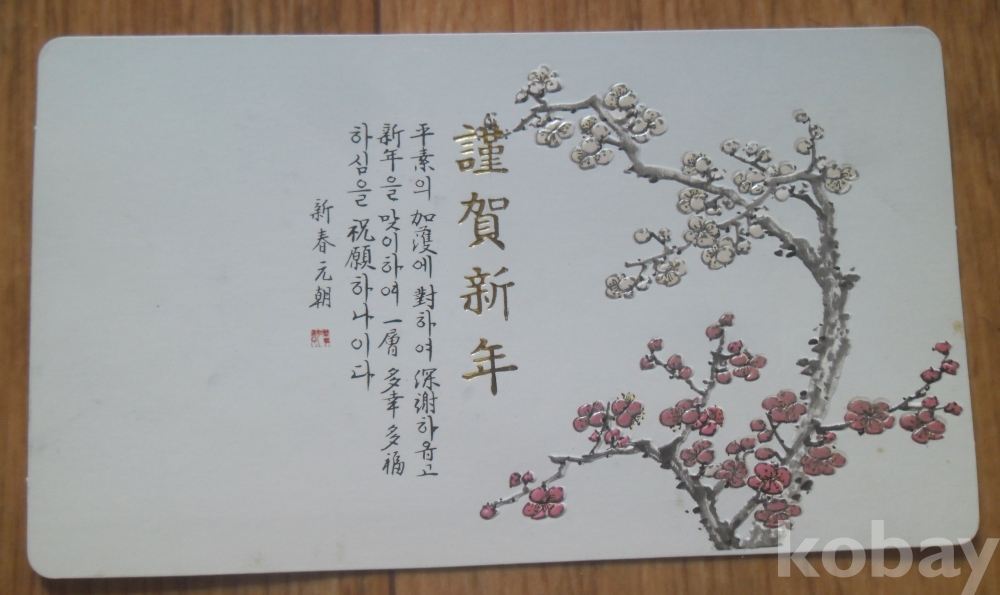 謹賀新年
平素의 加護에 對하여 深謝하옵고
新年을 맞이하여 一層 多幸多福
하심을 祝願하나이다
新春元朝
kobay